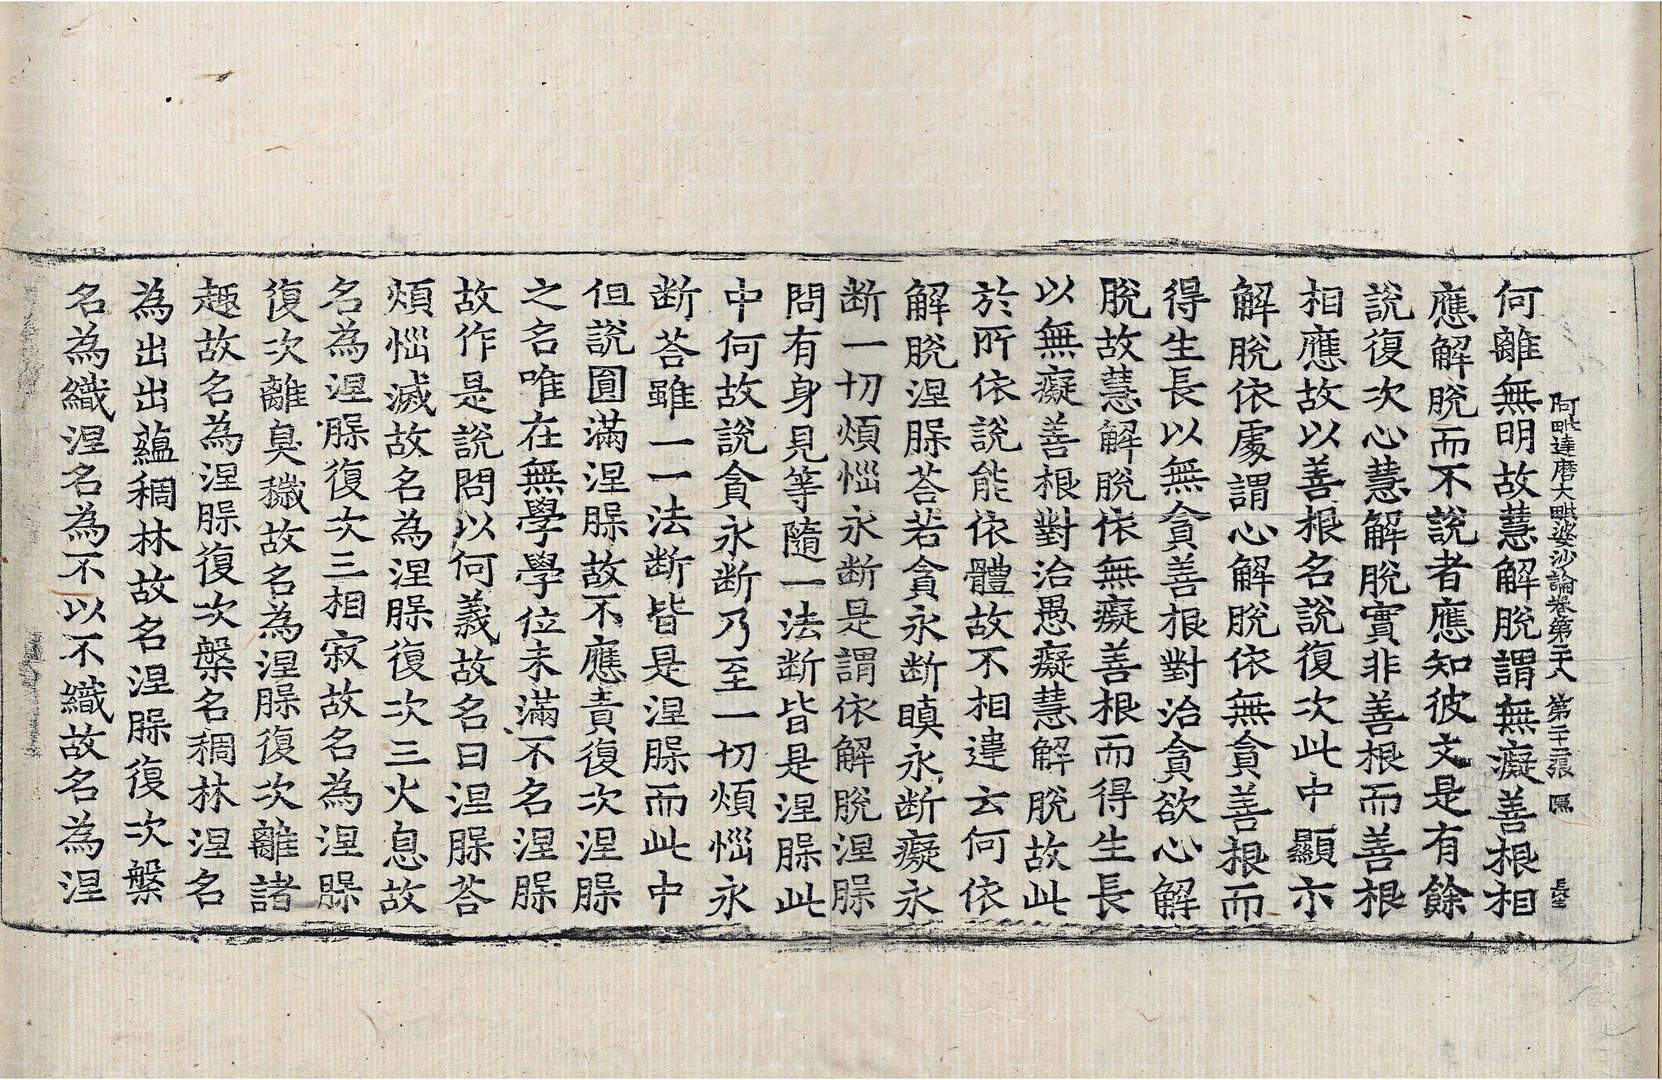 阿毗達磨大毗婆沙論卷第二十八 第二十張 隰
何離無明故慧解脫謂無癡善根相
應解脫而不說者應知彼文是有餘
說復次心慧解脫實非善根而善根
相應故以善根名說復次此中顯示
解脫依處謂心解脫依無貪善根而
得生長以無貪善根對治貪欲心解
脫故慧解脫依無癡善根而得生長
以無癡善根對治愚癡慧解脫故此
於所依說能依體故不相違云何依
解脫涅槃荅若貪永斷瞋永斷癡永
斷一切煩惱永斷是謂依解脫涅槃
問有身見等隨一法斷皆是涅槃此
中何故說貪永斷乃至一切煩惱永
斷荅雖一一法斷皆是涅槃而此中
但說圓滿涅槃故不應責復次涅槃
之名唯在無學學位未滿不名涅槃
故作是說問以何義故名曰涅槃荅
煩惱滅故名為涅槃復次三火息故
名為涅槃復次三相寂故名為涅槃
復次離臭穢故名為涅槃復次離諸
趣故名為涅槃復次槃名稠林涅名
為出出蘊稠林故名涅槃復次槃
名為織涅名為不以不織故名為涅